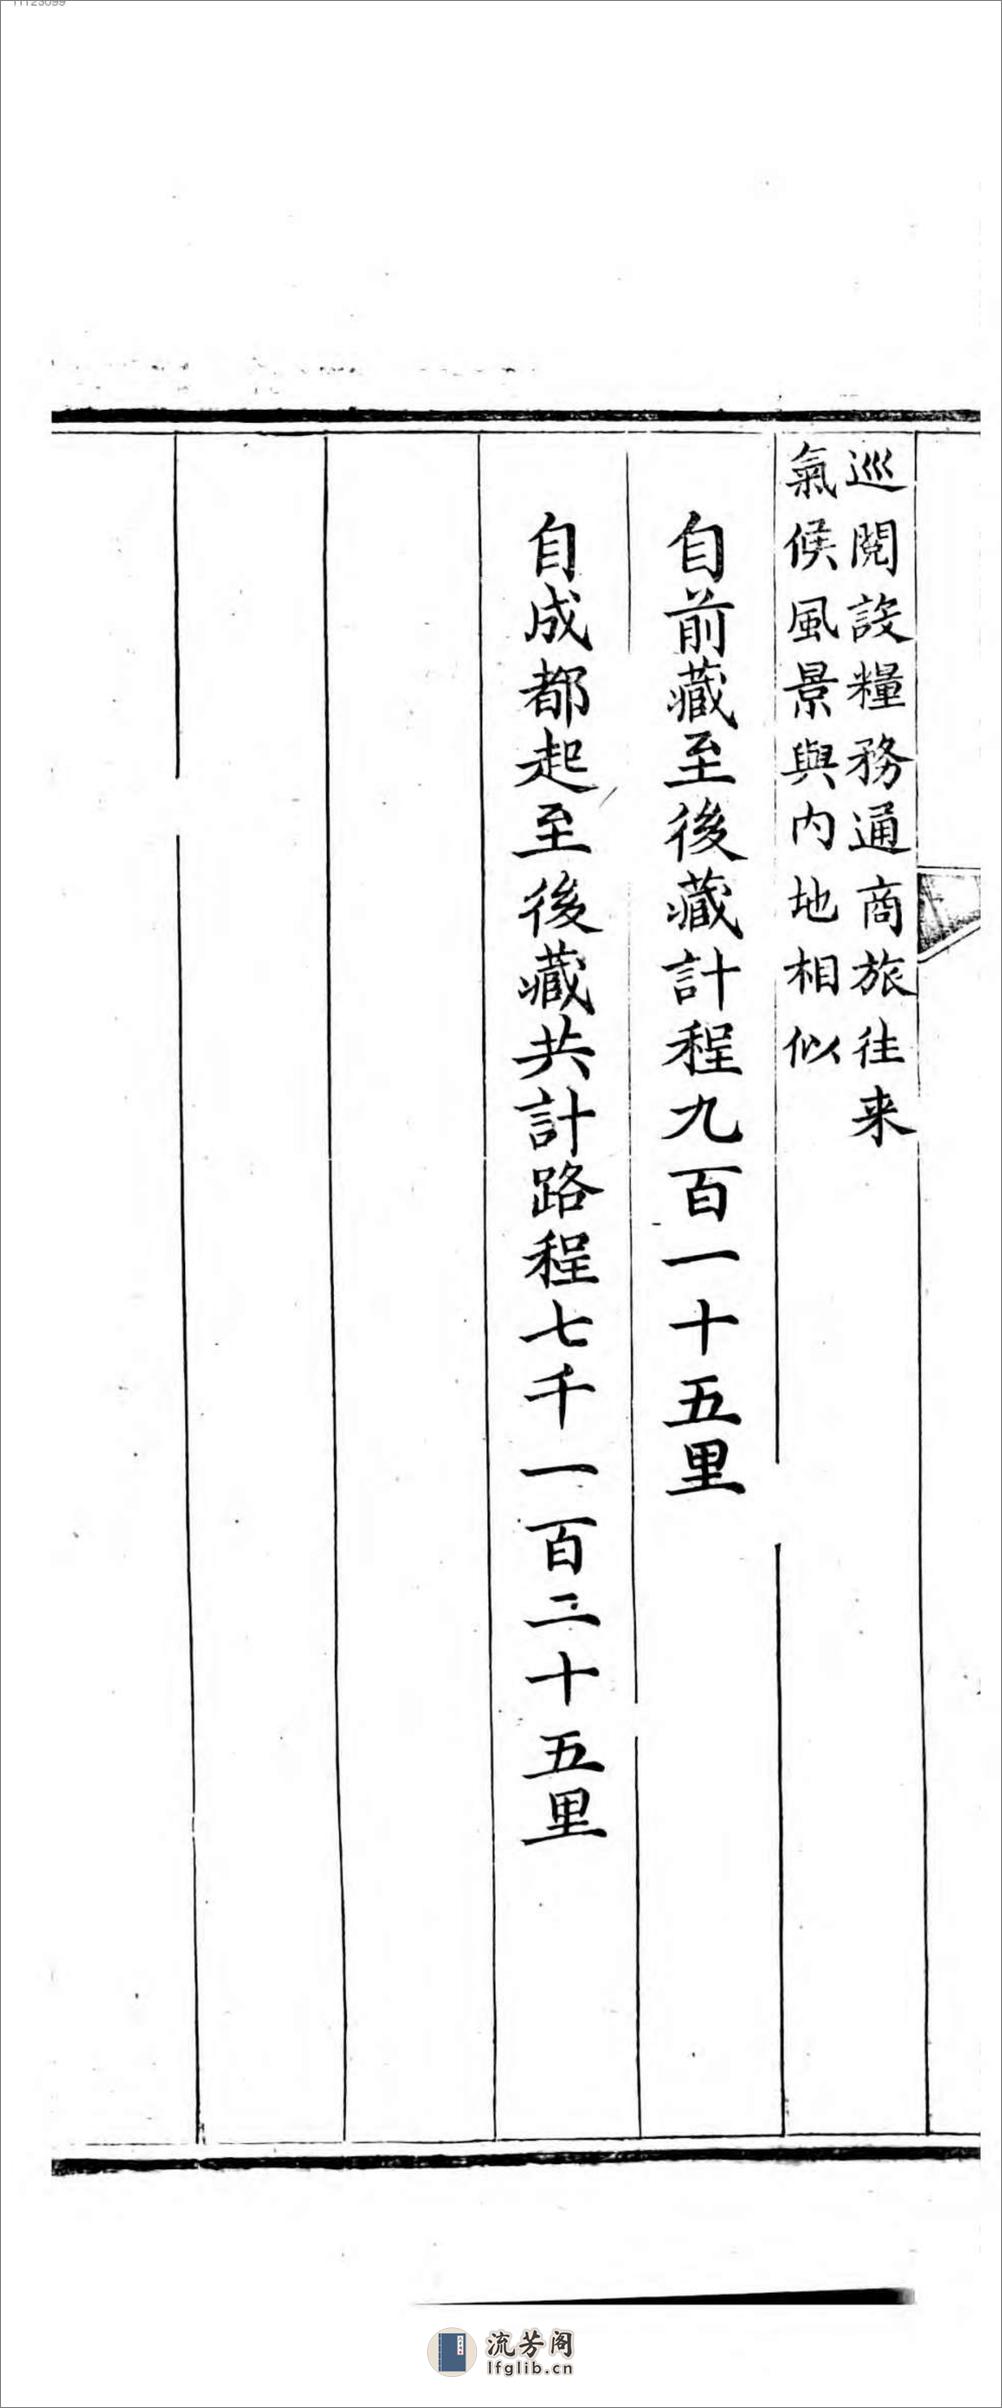 巡閱設糧務通商旅往来
氣候風景與内地相似
自前藏至後藏計程九百一十五里
自成都起至後藏共計路程七千一百二十五里
流芳阁
lfglib.cn